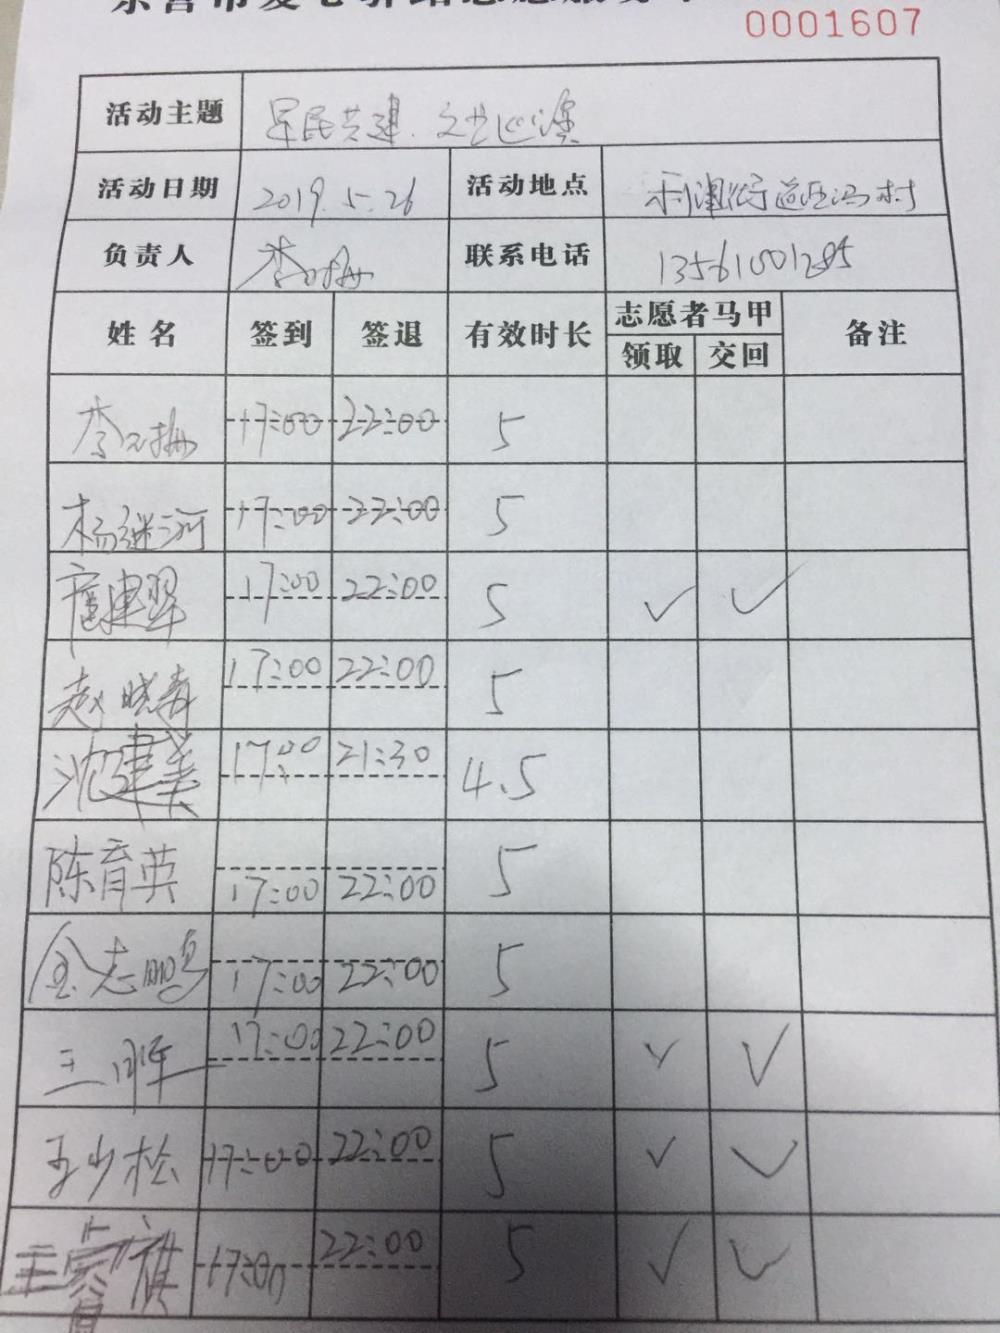 0001607
活动主题 军民共建.文艺巡演
活动日期 2019.5.26 活动地点 利津街道 村
负责人 李 梅 联系电话 13561001285
姓名 签到 签退 有效时长 志愿者马甲 备注
领取 交回
李 梅 17:00 22:00 5
杨继河 17:00 22:00 5
建翠 17:00 22:00 5 ✓ ✓
赵晓春 17:00 22:00 5
沈建美 17:00 21:30 4.5
陈育英 17:00 22:00 5
金志鹏 17:00 22:00 5
王 17:00 22:00 5 ✓ ✓
王少松 17:00 22:00 5 ✓ ✓
王 旗 17:00 22:00 5 ✓ ✓